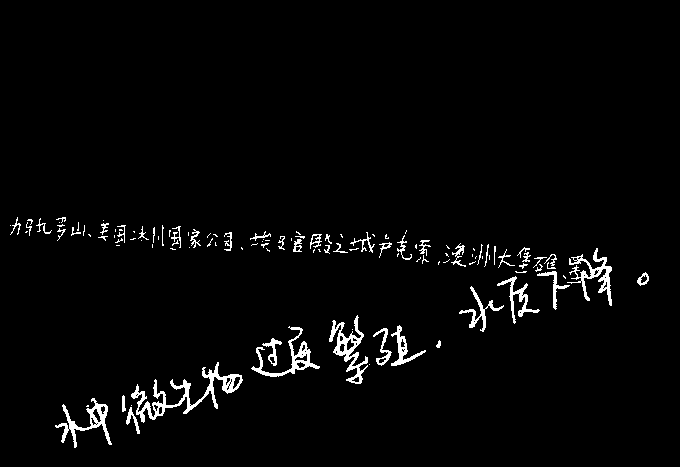 力马扎罗山、美国冰川国家公园、埃及宫殿之城卢克索,澳洲大堡礁、
水中微生物过度繁殖,水质下降。